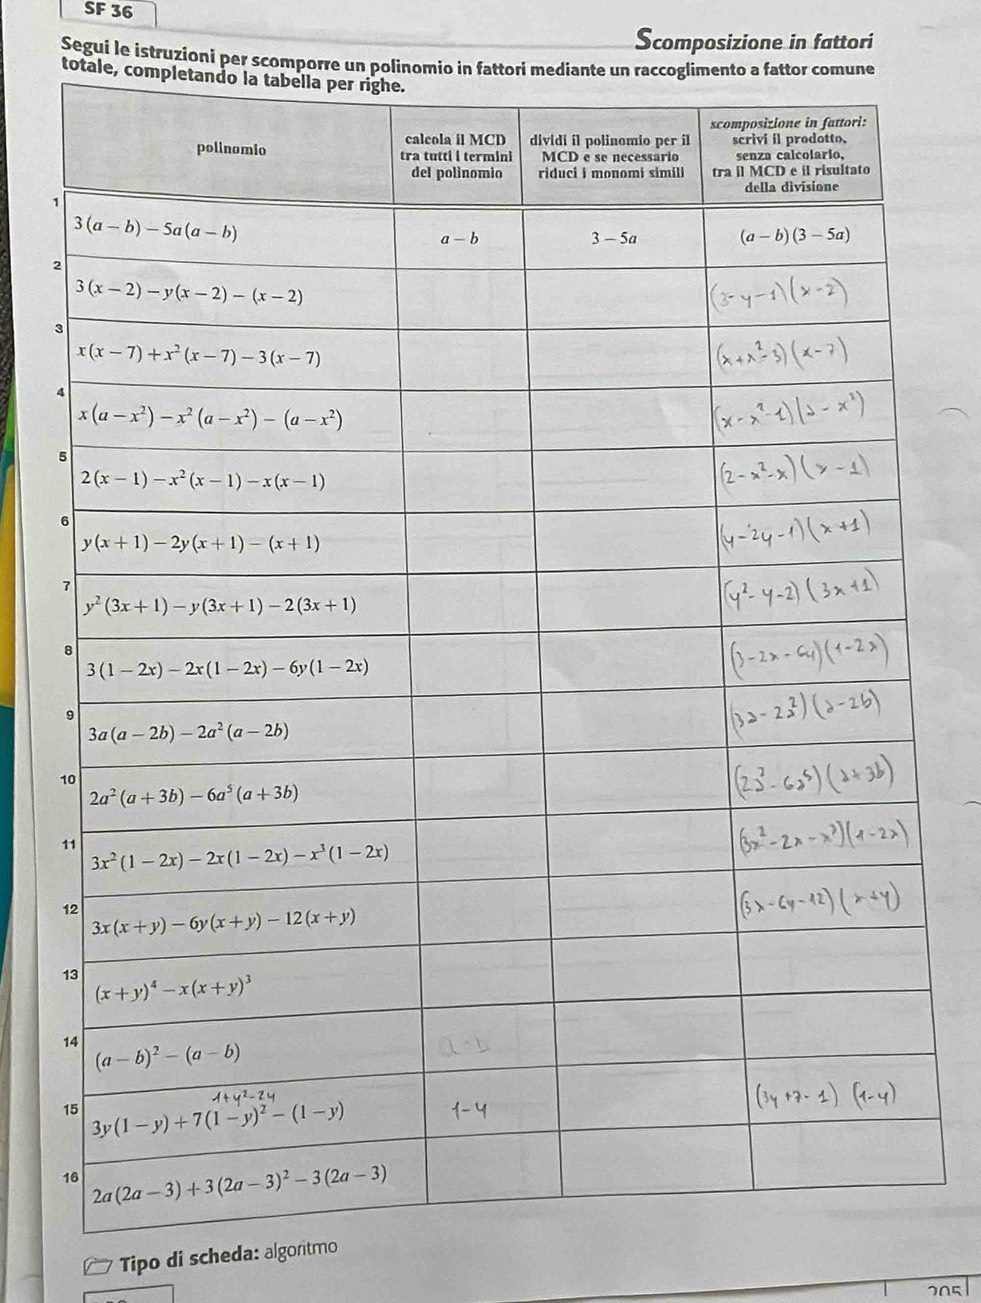 SF 36
Scomposizione in fattori
Segui le istruzioni per scomporre un polinomio in fattori mediante un raccoglimento a fattor comune
totale, completando la tabella per righe.
polinomio
calcola il MCD
tra tutti i termini
del polinomio
dividi il polinomio per il
MCD e se necessario
riduci i monomi simili
scomposizione in fattori:
scrivi il prodotto,
senza calcolarlo,
tra il MCD e il risultato
della divisione
1
3(a − b) − 5a(a − b) a − b 3 − 5a (a − b)(3 − 5a)
2
3(x − 2) − y(x − 2) − (x − 2) (3 - y - 1)(x - 2)
3
x(x − 7) + x²(x − 7) − 3(x − 7) (x + x² - 3)(x - 7)
4
x(a − x²) − x²(a − x²) − (a − x²) (x - x² - 1)(a - x²)
5
2(x − 1) − x²(x − 1) − x(x − 1) (2 - x² - x)(x - 1)
6
y(x + 1) − 2y(x + 1) − (x + 1) (y - 2y - 1)(x + 1)
7
y²(3x + 1) − y(3x + 1) − 2(3x + 1) (y² - y - 2)(3x + 1)
8
3(1 − 2x) − 2x(1 − 2x) − 6y(1 − 2x) (3 - 2x - 6y)(1 - 2x)
9
3a(a − 2b) − 2a²(a − 2b) (3a - 2a²)(a - 2b)
10
2a²(a + 3b) − 6a⁵(a + 3b) (2a² - 6a⁵)(a + 3b)
11
3x²(1 − 2x) − 2x(1 − 2x) − x³(1 − 2x) (3x² - 2x - x³)(1 - 2x)
12
3x(x + y) − 6y(x + y) − 12(x + y) (3x - 6y - 12)(x + y)
13
(x + y)⁴ − x(x + y)³
14
(a − b)² − (a − b) a - b
1 + y² - 2y
15
3y(1 − y) + 7(1 − y)² − (1 − y) 1 - y (3y + 7 - 1) (1 - y)
16
2a(2a − 3) + 3(2a − 3)² − 3(2a − 3)
Tipo di scheda: algoritmo